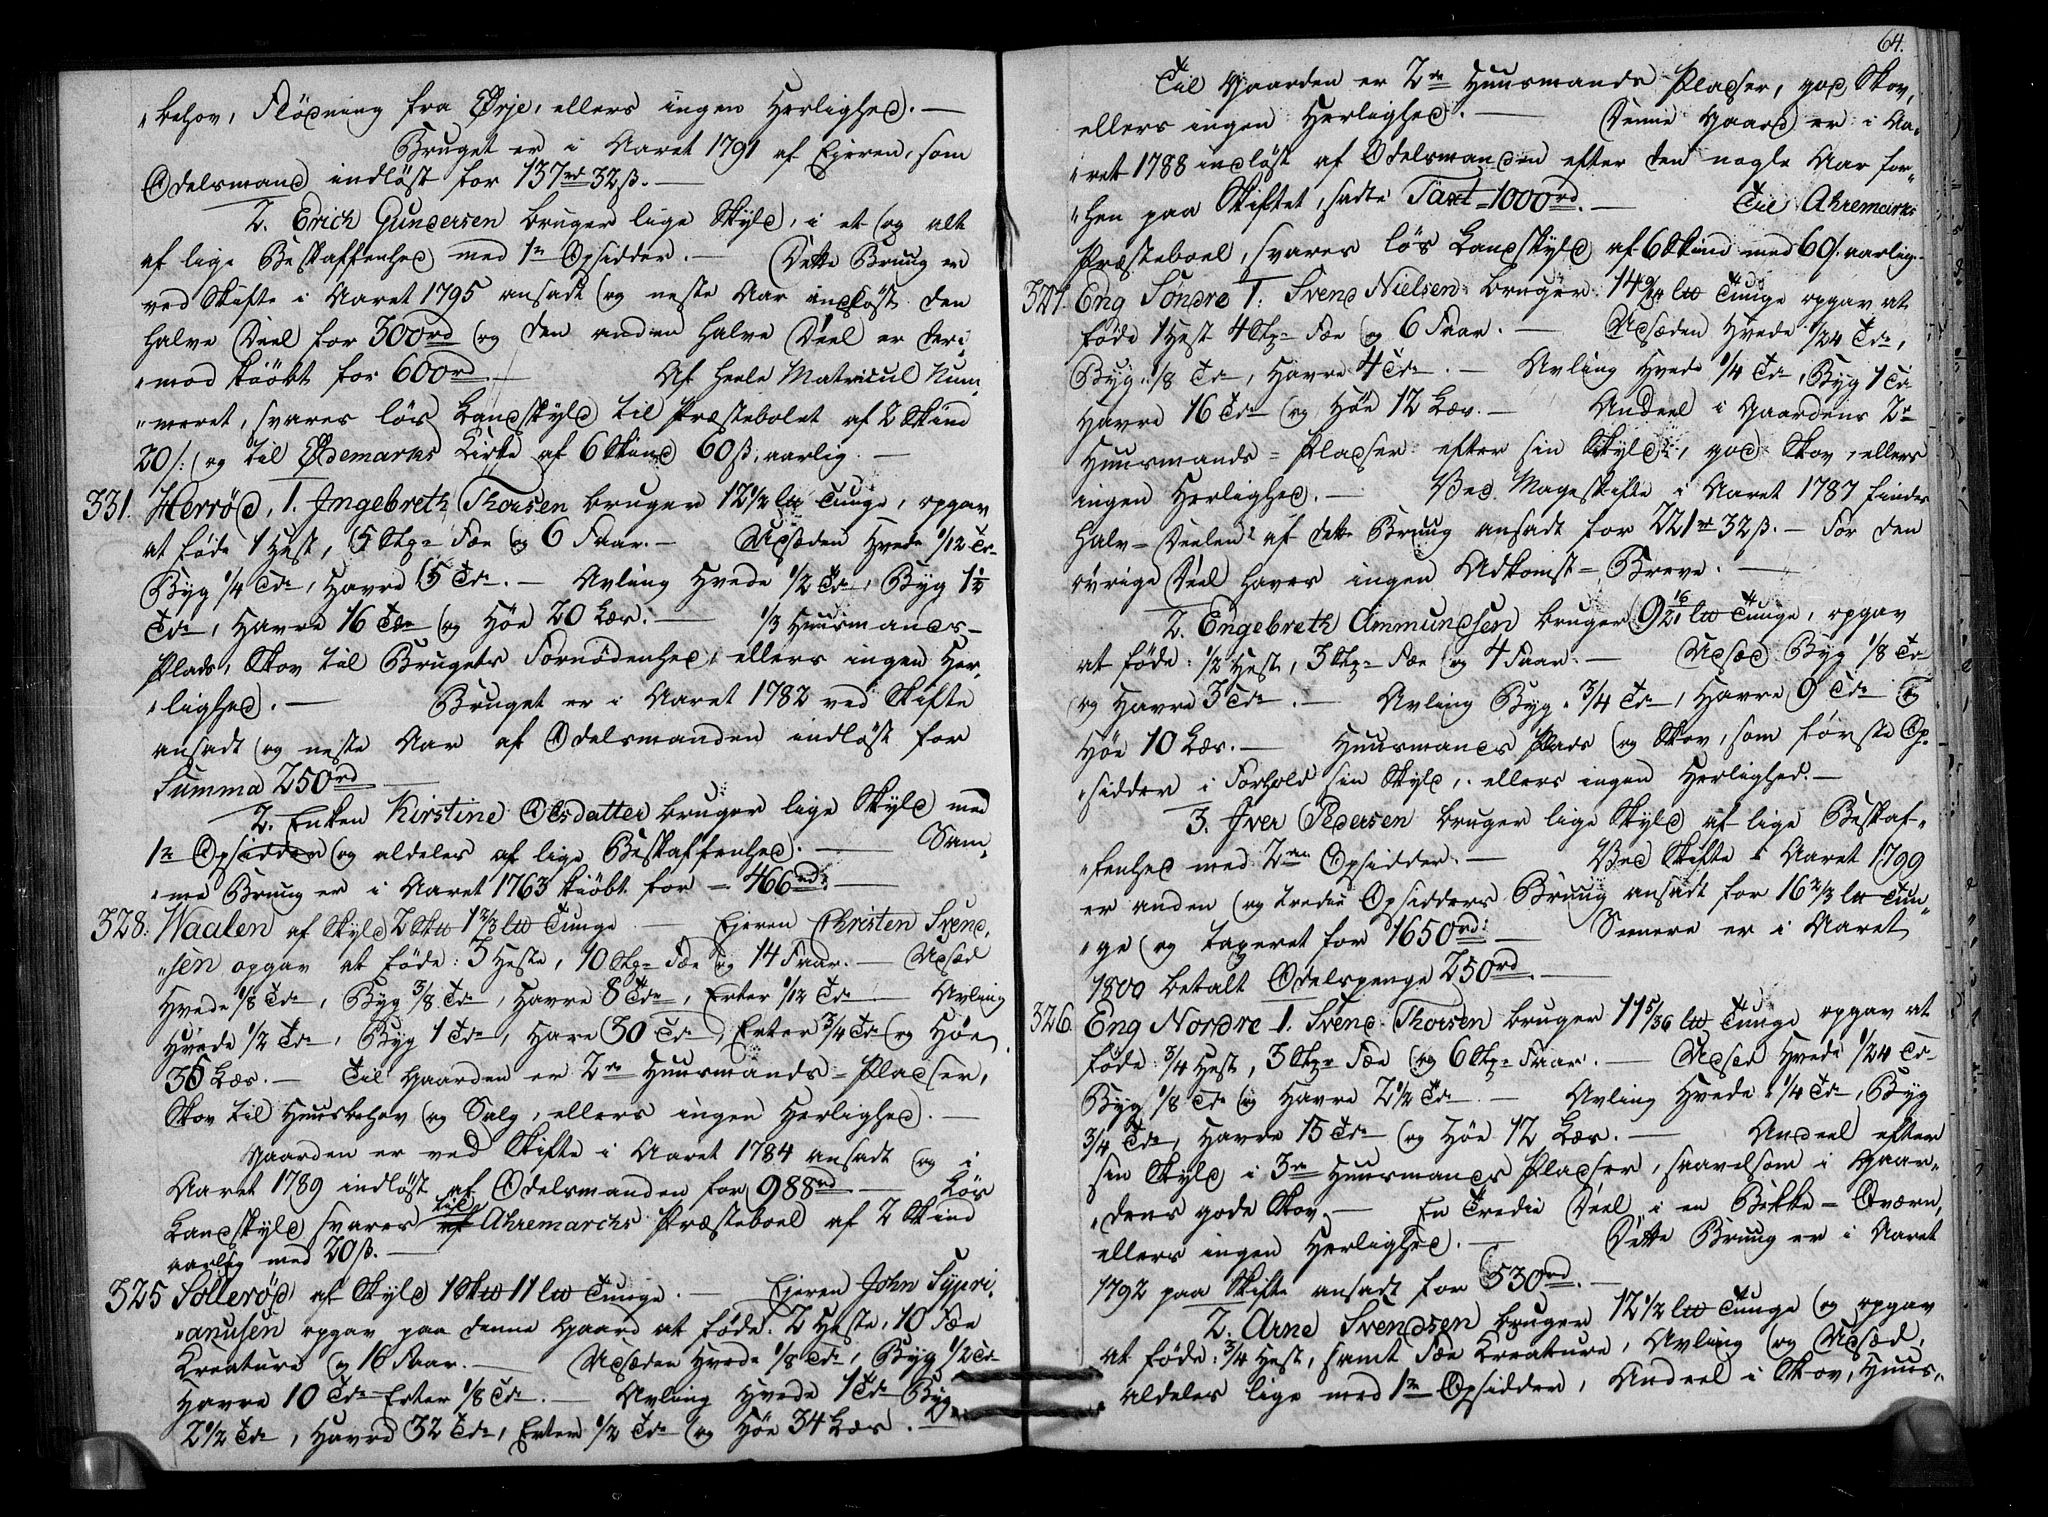 behov, Flødning fra Ørje, ellers ingen Herlighed. —
Bruget er i Aaret 1791 af Ejeren, som
Odelsmand indløst for 137rd 32ß. —
2. Erich Gundersen bruger lige Skyld, i et og alt
af lige Beskaffenhed med 1te Opsidder. — Dette Bruug er
ved Skifte i Aaret 1795 ansadt og neste Aar indløst den
halve Deel for 300rd og den anden halve Deel er deri-
mod kiöbt for 600rd — Af heele Matricul Num-
meret, svares løs Landskyld til Præstebolet af 2 Skind
20ß: og til Ødemarks Kirke af 6 Skind 60ß, aarlig. —
331. Herrød, 1. Ingebreth Thorsen bruger 12 1/2 lb Tunge, opgav
at føde 1 Hest, 5 Stk Fæe og 6 Faar. — Udsæden Hvede 1/12 Td
Byg 1/4 Td, Havre 5 Td. — Avling Hvede 1/2 Td, Byg 1 1/2
Td, Havre 16 Td og Høe 20 Læs. — 1/3 Huusmands-
Plads, Skov til Brugets Fornødenhed, ellers ingen Her-
lighed. — Bruget er i Aaret 1782 ved Skifte
ansadt og neste Aar af Odelsmanden indløst for
Summa 250rd —
2. Enken Kirstine Olsdatter bruger lige Skyld med
1te Opsidder og aldeles af lige Beskaffenhed. — Sam-
me Bruug er i Aaret 1763 kiöbt for — 466rd: —
328. Waalen af Skyld 2 Skb 1 2/3 lb Tunge — Ejeren Christen Svend-
sen opgav at føde: 3 Heste, 10 Stk Fæe og 14 Faar. — Udsæd
Hvede 1/8 Td, Byg 3/8 Td, Havre 8 Td, Erter 1/12 Td — Avling
Hvede 1/2 Td, Byg 1 Td, Hare 30 Td, Erter 3/4 Td og Høe
35 Læs. — Til Gaarden er 2de Huusmands-Pladser,
Skov til Huusbehov og Salg, ellers ingen Herlighed. —
Gaarden er ved Skifte i Aaret 1784 ansadt og i
Aaret 1789 indløst af Odelsmanden for 988rd — Løs
Landskyld svares til Ahremarchs Præsteboel af 2 Skind
aarlig med 20ß. —
325 Sollerød af Skyld 1 Skb 11 lb Tunge. — Ejeren John Sypri-
anusen opgav paa denne Gaard at føde: 2 Heste, 10 Fæe
Kreature og 16 Faar. — Udsæden Hvede 1/8 Td, Byg 1/2 Td
Havre 10 Td Erter 1/8 Td. — Avling Hvede 1 Td Byg
2 1/2 Td, Havre 32 Td, Erter 1/2 Td og Høe 34 Læs. —
64.
Til Gaarden er 2de Huusmands Pladser, god Skov,
ellers ingen Herlighed. — Denne Gaard er i Aa-
ret 1788 indløst af Odelsmanden efter den nogle Aar for-
hen paa Skiftet, sadte Taxt — 1000rd. — Til Ahremarks
Præsteboel, svares løs Landskyld af 6 Skind med 60ß. aarlig.
327. Eng Søndre 1. Svend Nielsen bruger 14 lb Tunge opgav at
føde 1 Hest 4 Stk Fæe og 6 Faar. — Udsæden Hvede 1/24 Td,
Byg 1/8 Td, Havre 4 Td. — Avling Hvede 1/4 Td, Byg 1 Td
Havre 16 Td og Høe 12 Læs. — Andeel i Gaardens 2de
Huusmands-Pladser efter sin Skyld, god Skov, ellers
ingen Herlighed. — Ved Mageskifte i Aaret 1787 findes
Halv-Deelen af dette Bruug ansadt for 221rd 32ß. — For den
øvrige Deel haves ingen Adkomst-Breve. —
2. Engebreth Ammundsen bruger 9 16/21 lb Tunge, opgav
at føde: 1/2 Hest, 3 Stk Fæe og 4 Faar. — Udsæd Byg 1/8 Td
og Havre 3 Td. — Avling Byg 3/4 Td, Havre 9 Td og
Høe 10 Læs. — Huusmands Plads og Skov, som første Op-
sidder i Forhold sin Skyld, ellers ingen Herlighed. —
3. Iver Pedersen bruger lige Skyld af lige Beskaf-
fenhed med 2den Opsidder. — Ved Skifte i Aaret 1799
er anden og tredie Opsidders Bruug ansadt for 16 2/3 lb Tun-
ge og taxeret for 1650rd: — Senere er i Aaret
1800 betalt Odelspenge 250rd. —
326. Eng Nordre 1. Svend Thorsen bruger 11 5/36 lb Tunge opgav at
føde: 3/4 Hest, 3 Stk Fæe og 6 Stk Faar. — Udsæd Hvede 1/24 Td
Byg 1/8 Td og Havre 2 1/2 Td — Avling Hvede 1/4 Td, Byg
3/4 Td, Havre 15 Td og Høe 12 Læs. — Andeel efter
sin Skyld i 3de Huusmands Pladser, saavelsom i Gaar-
dens gode Skov — En Tredie Deel i en Bække-Qværn,
ellers ingen Herlighed. — Dette Bruug er i Aaret
1792 paa Skifte ansadt for 530rd. —
2. Arne Svendsen bruger 12 1/2 lb Tunge og opgav
at føde: 3/4 Hest, samt Fæe Kreature, Avling og Udsæd,
aldeles lige med 1te Opsidder, Andeel i Skov, Huus-